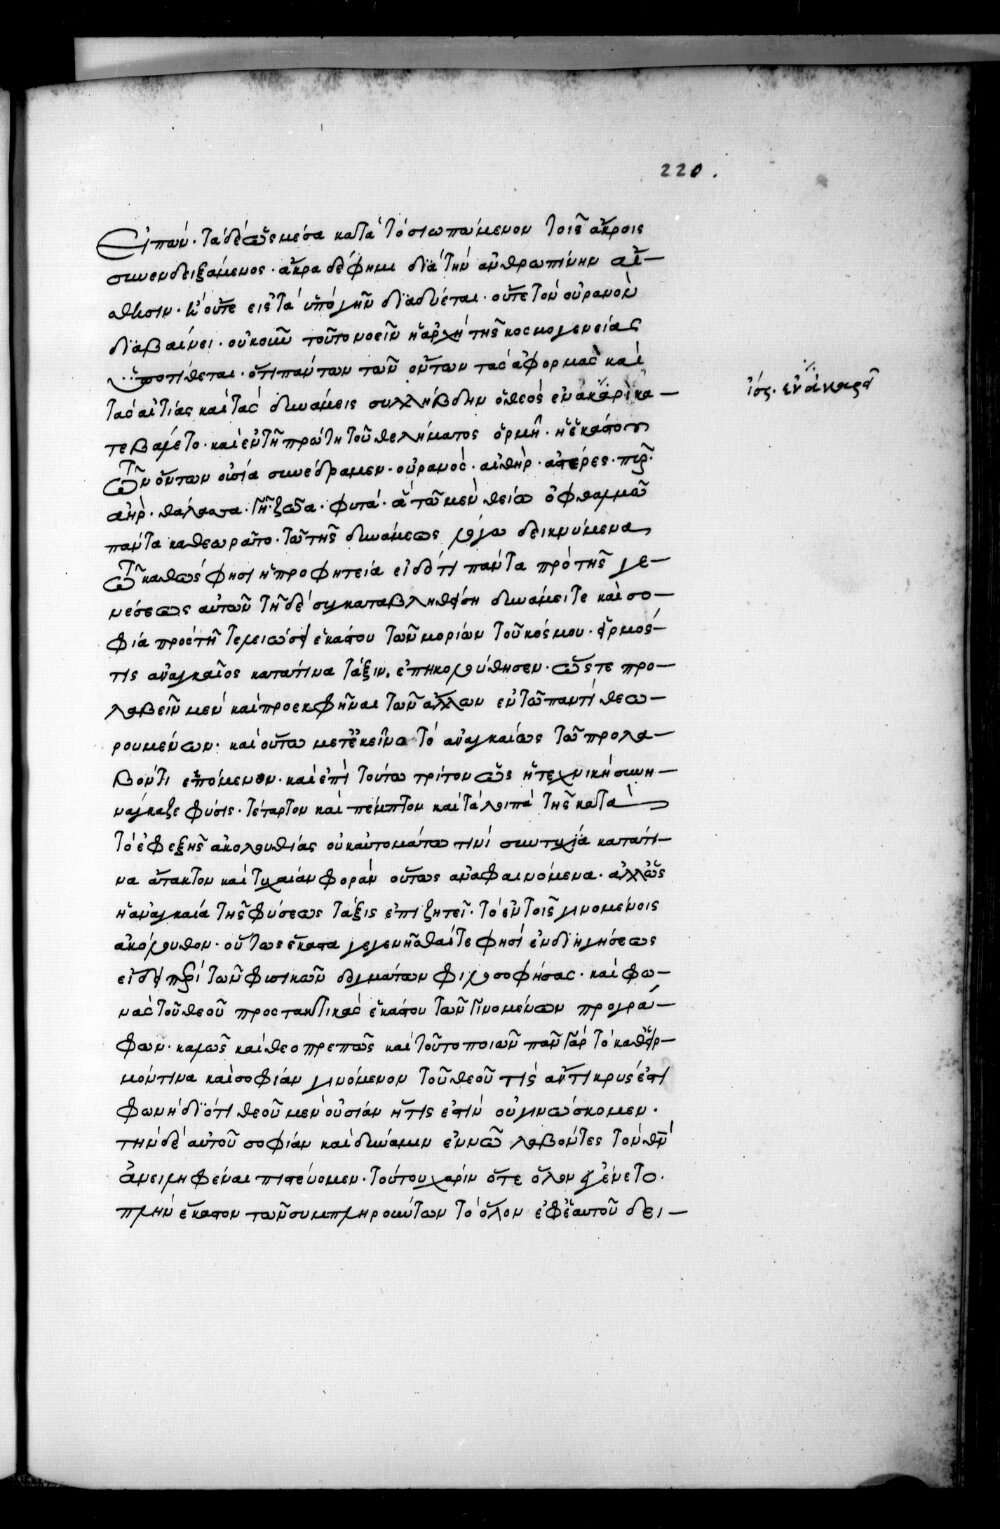 220.
Εἰπών· τὰ δὲ ὡς μέσα κατὰ τὸ σιωπώμενον τοῖς ἄκροις
συνενδειξάμενος· ἄκρα δέ φημι διὰ τὴν ἀνθρωπίνην αἴ-
σθησιν· ὅτι οὔτε εἰς τὰ ὑπὸ γῆν διαδύεται· οὔτε τὸν οὐρανὸν
διαβαίνει· οὐκοῦν τοῦτο νοεῖν ἡ ἀρχὴ τῆς κοσμογενείας
ὑποτίθεται· ὅτι πάντων τῶν ὄντων τὰς ἀφορμὰς καὶ
τὰς αἰτίας καὶ τὰς δυνάμεις συλλήβδην ὁ θεὸς ἐν ἀκαρεῖ κα-
τεβάλετο· καὶ ἐν τῇ πρώτῃ τοῦ θελήματος ὁρμῇ· ἡ ἑκάστου
τῶν ὄντων οὐσία συνέδραμεν· οὐρανός· αἰθήρ· ἀστέρες· πῦρ·
ἀήρ· θάλασσα· γῆ· ζῶα· φυτά· ἃ τῷ μὲν θείω ὀφθαλμῷ
πάντα καθεωρᾶτο· τῷ τῆς δυνάμεως λόγω δεικνύμενα
τῷ καθώς φησι ἡ προφητεία εἰδότι πάντα πρὸ τῆς γε-
νέσεως αὐτῶν τῇ δὲ συγκαταβληθείσῃ δυνάμει τε καὶ σο-
φία πρὸς τὴν τελείωσιν ἑκάστου τῶν μορίων τοῦ κόσμου· εἱρμός
τις ἀναγκαῖος κατά τινα τάξιν, ἐπηκολούθησεν· ὥστε προ-
λαβεῖν μὲν καὶ προεκφῆναι τῶν ἄλλων ἐν τῷ παντὶ θεω-
ρουμένων· καὶ οὕτω μετ' ἐκεῖνο τὸ ἀναγκαίως τῷ προλα-
βόντι ἑπόμενον· καὶ ἐπὶ τούτω τρίτον ὡς ἡ τεχνικὴ συνη-
νάγκαζε φύσις· τέταρτον καὶ πέμπτον καὶ τὰ λοιπὰ τῆς κατὰ
τὸ ἐφεξῆς ἀκολουθίας οὐκ αὐτομάτω τινὶ συντυχία κατά τι-
να ἄτακτον καὶ τυχαίαν φορὰν οὕτως ἀναφαινόμενα· ἀλλ' ὡς
ἡ ἀναγκαία τῆς φύσεως τάξις ἐπιζητεῖ· τὸ ἐν τοῖς γινομένοις
ἀκόλουθον· οὕτως ἕκαστα γεγενῆσθαί τε φησὶ ἐν διηγήσεως
εἴδει περὶ τῶν φυσικῶν δογμάτων φιλοσοφήσας· καὶ φω-
νὰς τοῦ θεοῦ προστακτικὰς ἑκάστου τῶν γινομένων προγρά-
φων· καλῶς καὶ θεοπρεπῶς καὶ τοῦτο ποιῶν πᾶν γὰρ τὸ καθ' εἱρ-
μόν τινα καὶ σοφίαν γινόμενον τοῦ θεοῦ τίς ἄντικρυς ἐστὶ
φωνὴ διότι θεοῦ μὲν οὐσίαν ἥτις ἐστὶν οὐ γινώσκομεν·
τὴν δὲ αὐτοῦ σοφίαν καὶ δύναμιν ἐν νῷ λαβόντες τὸν θν
ἀνειληφέναι πιστεύομεν· τούτου χάριν ὅτε ὅλον ἐγένετο·
πλὴν ἕκαστον τῶν συμπληρούντων τὸ ὅλον ἐφ' ἑαυτοῦ δει-